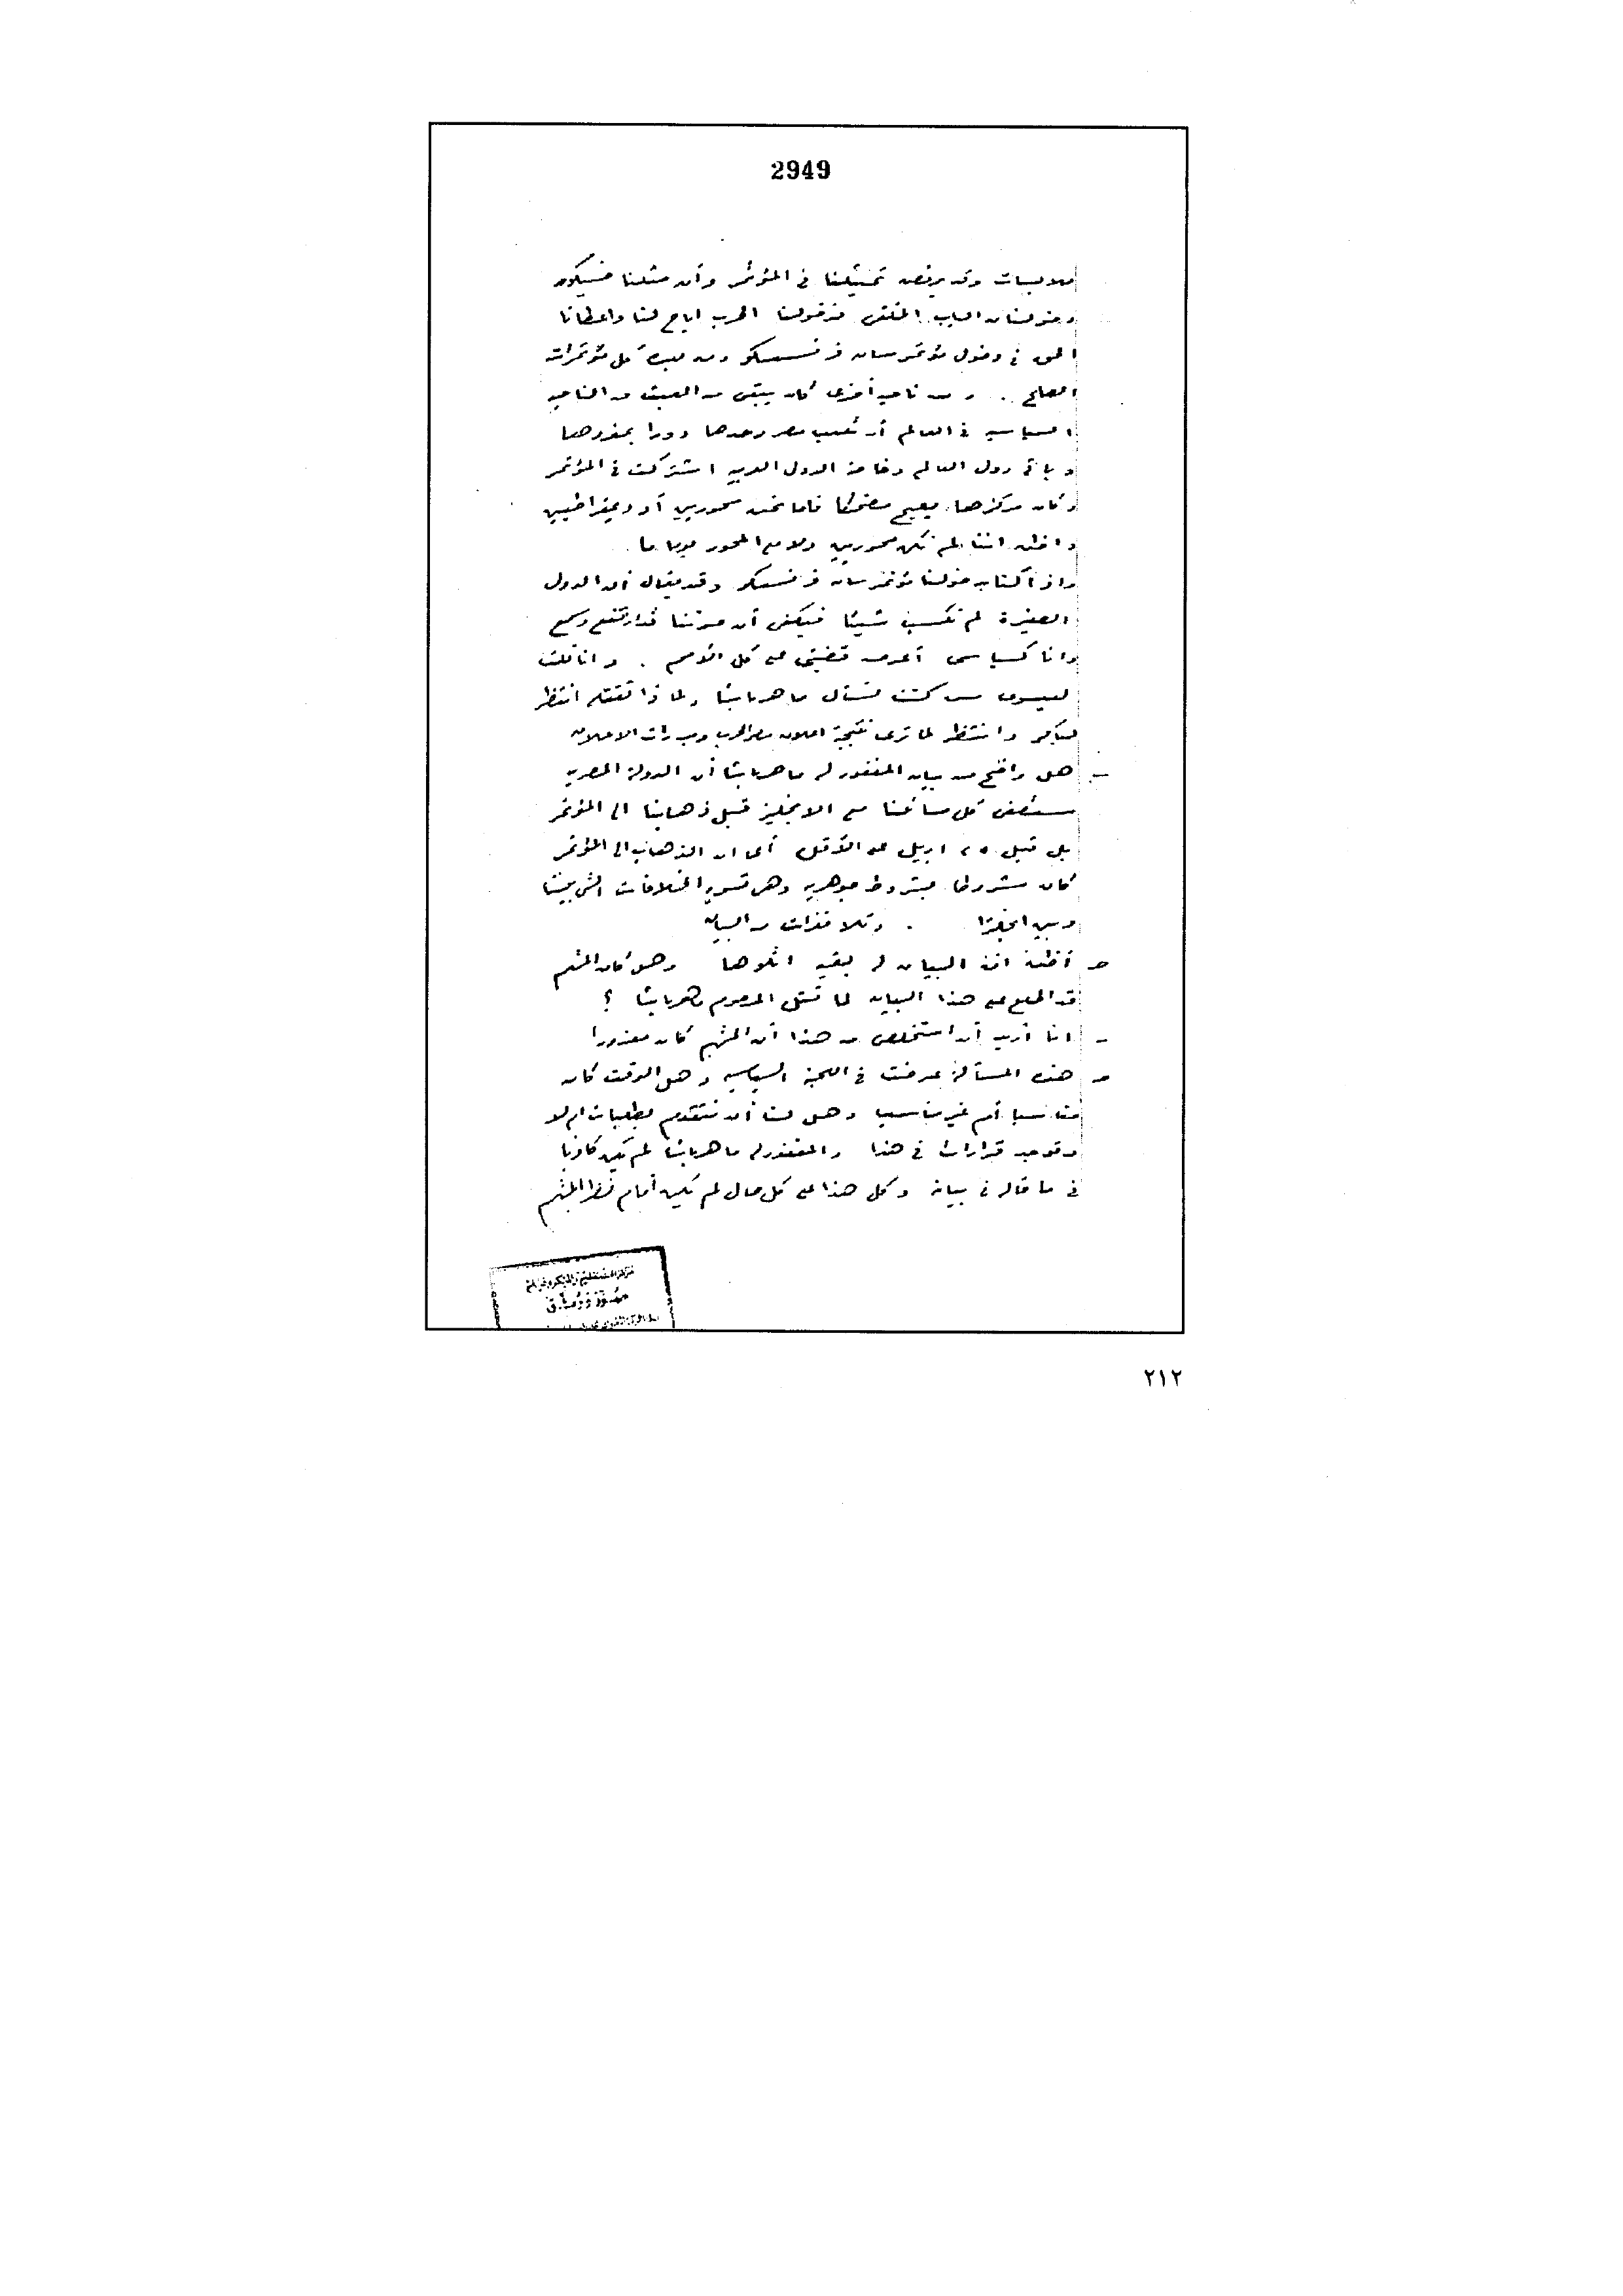 2949
ملابسات وقد يرفض تمثيلنا فى المؤتمر وأن مثلنا فسيكون
دخولنا من الباب الخلفى فدخولنا الحرب اباح لنا واعطانا
الحق فى دخول مؤتمر سان فرنسسكو ومن بعده كل مؤتمرات
الصلح . . ومن ناحية أخرى كان يبقى من العبث من الناحية
السياسية فى العالم أن تلعب مصر وحدها دورا بمفردها
وباقى دول العالم وخاصة الدول العربية اشتركت فى المؤتمر
وكان مركزها يصبح مضحكا فاما نحن محوريين أو ديمقراطيين
واظن اننا لم نكن محوريين ولا مع المحور يوما ما .
واذا كتاب دخولنا مؤتمر سان فرنسسكو وقد يقال أن الدول
الصغيرة لم تكسب شيئا فيكفى أن صوتنا قد ارتفع وسمع
وانا كسياسى أعرض قضيتى على كل الأمم . وانا قلت
للعيسوى سن كنت تسأل ماهر باشا ولماذا تقتله انتظر
لتأكد وانتظر لما ترى نتيجة اعلان مصر الحرب ومبررات الاعلان
ـ هل واضح من بيان المغفور له ماهر باشا أن الدولة المصرية
ستصفى كل مسائلنا مع الانجليز قبل ذهابنا الى المؤتمر
بل قبل ٢٥ ابريل على الأقل أى ان الذهاب الى المؤتمر
كان مشروطا بشروط جوهرية وهى تسوية الخلافات التى بيننا
وبين انجلترا . وتلا فقرات من البيان
حـ أظن أن البيان له بقية اتلوها وهل كان المتهم
قد اطلع على هذا البيان لما قتل المرحوم ماهر باشا ؟
ـ انا أريد أن استخلص من هذا أن المتهم كان معذورا
حـ هذه المسألة عرضت فى اللجنة السياسية وهل الوقت كان
مناسبا أم غير مناسب وهل لنا أن نتقدم بطلبات ام لا
وتوجد قرارات فى هذا والمغفور له ماهر باشا لم يكن كاذبا
فى ما قاله فى بيانه وكل هذا على كل حال لم يكن أمام نظر المتهم
٢١٢